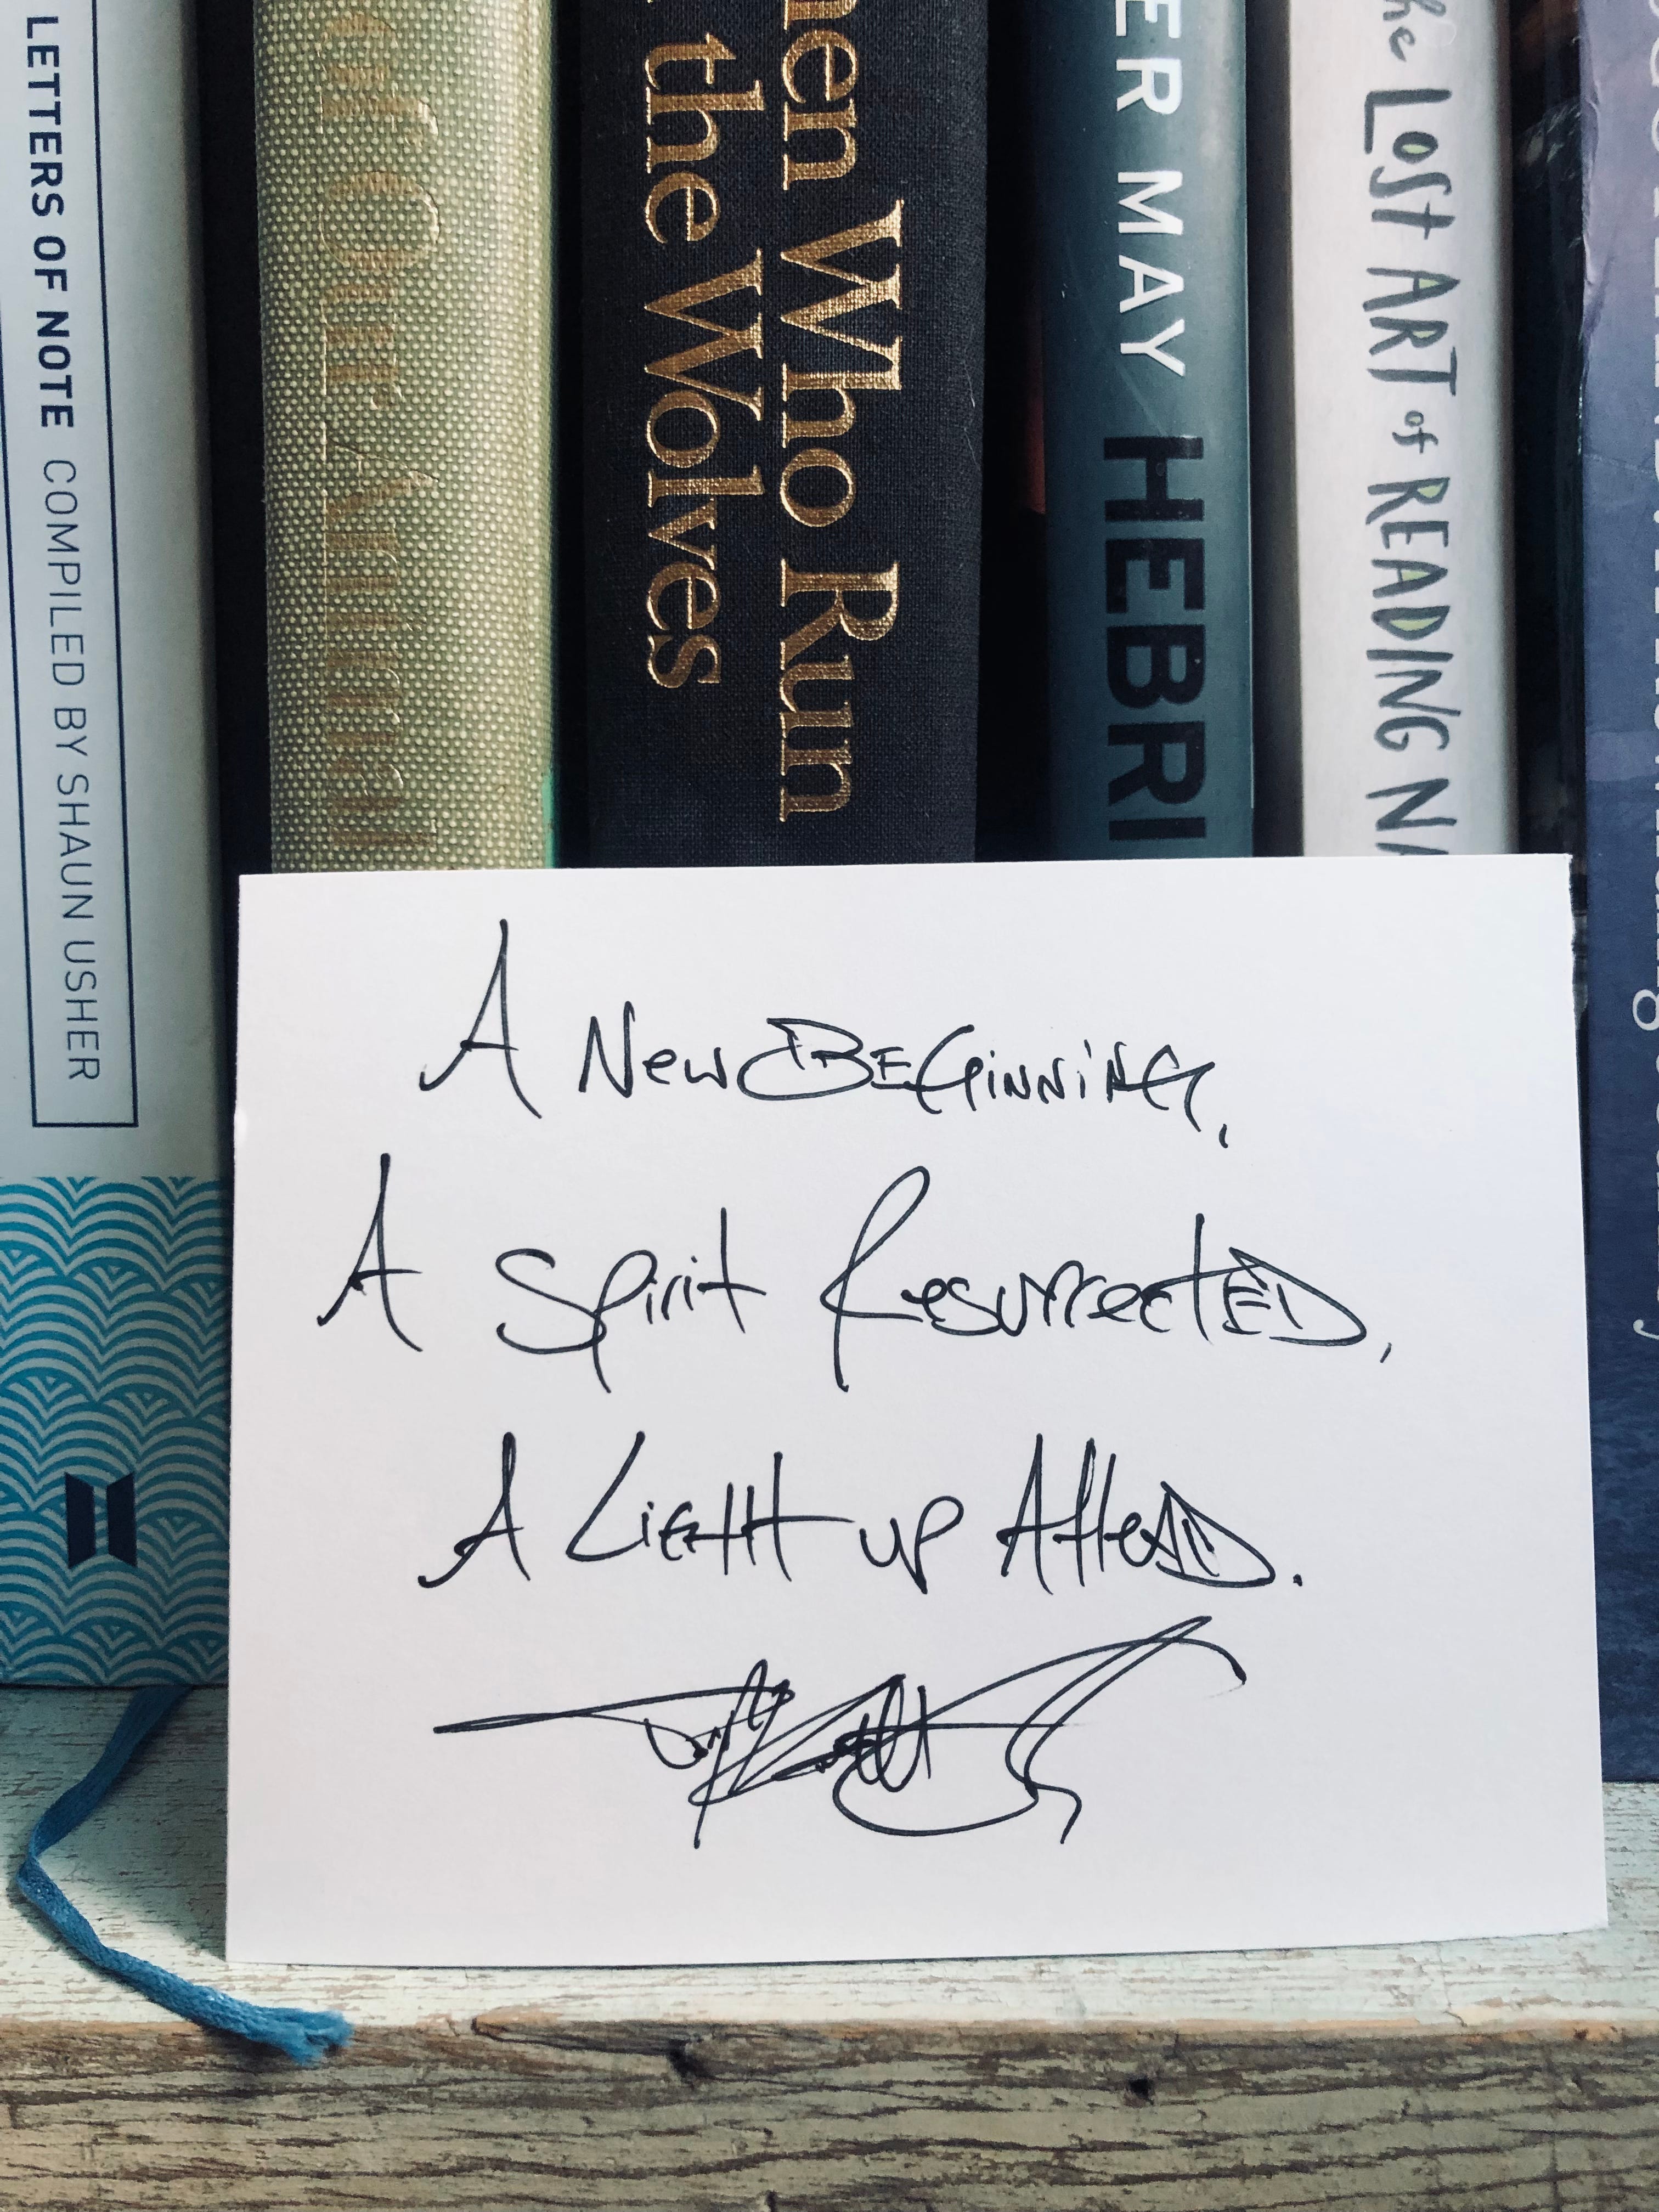 LETTERS OF NOTE COMPILED BY SHAUN USHER
of Our Animal
en Who Run
the Wolves
ER MAY HEBRI
he LOST ART of READING NA
A New BEGinning,
A Spirit ResurrectED,
A LiGHt up AHeAD.